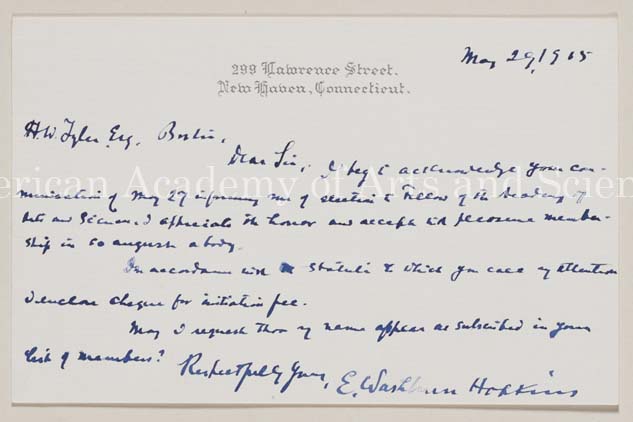 May 29, 1915
299 Lawrence Street.
New Haven, Connecticut.
H.W. Tyler Esq., Boston,
Dear Sir, I beg to acknowledge your com-
munication of May 27 informing me of election to Fellow of the Academy of
Arts and Sciences. I appreciate the honor and accept with pleasure member-
ship in so august a body.
In accordance with Statute to which you call my attention
I enclose cheque for initiation fee.
May I request that my name appear as subscribed in your
list of members?
Respectfully Yours,
E. Washburn Hopkins
American Academy of Arts and Scien